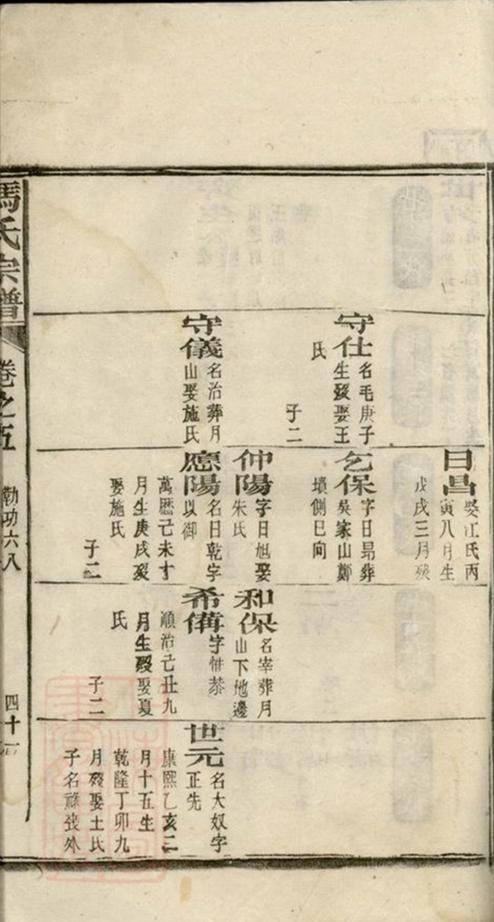 守仕
名毛庚子
生歿娶王
氏
子二
守儀
名治葬月
山娶施氏
日昌
娶江氏丙
寅八月生
戊戌三月歿
乞保
字日昻葬
吳家山鄭
墳側巳向
仲陽
字日旭娶
朱氏
應陽
名日乾字
以御
萬歷己未十
月生庚戌歿
娶施氏
子二
和保
名宰葬月
山下地邊
希備
字惟恭
順治己丑九
月生歿娶夏
氏
子二
世元
名大奴字
正先
康熙乙亥二
月十五生
乾隆丁卯九
月歿娶土氏
子名
外
馮氏宗譜
卷之五
勒功六八
四十一